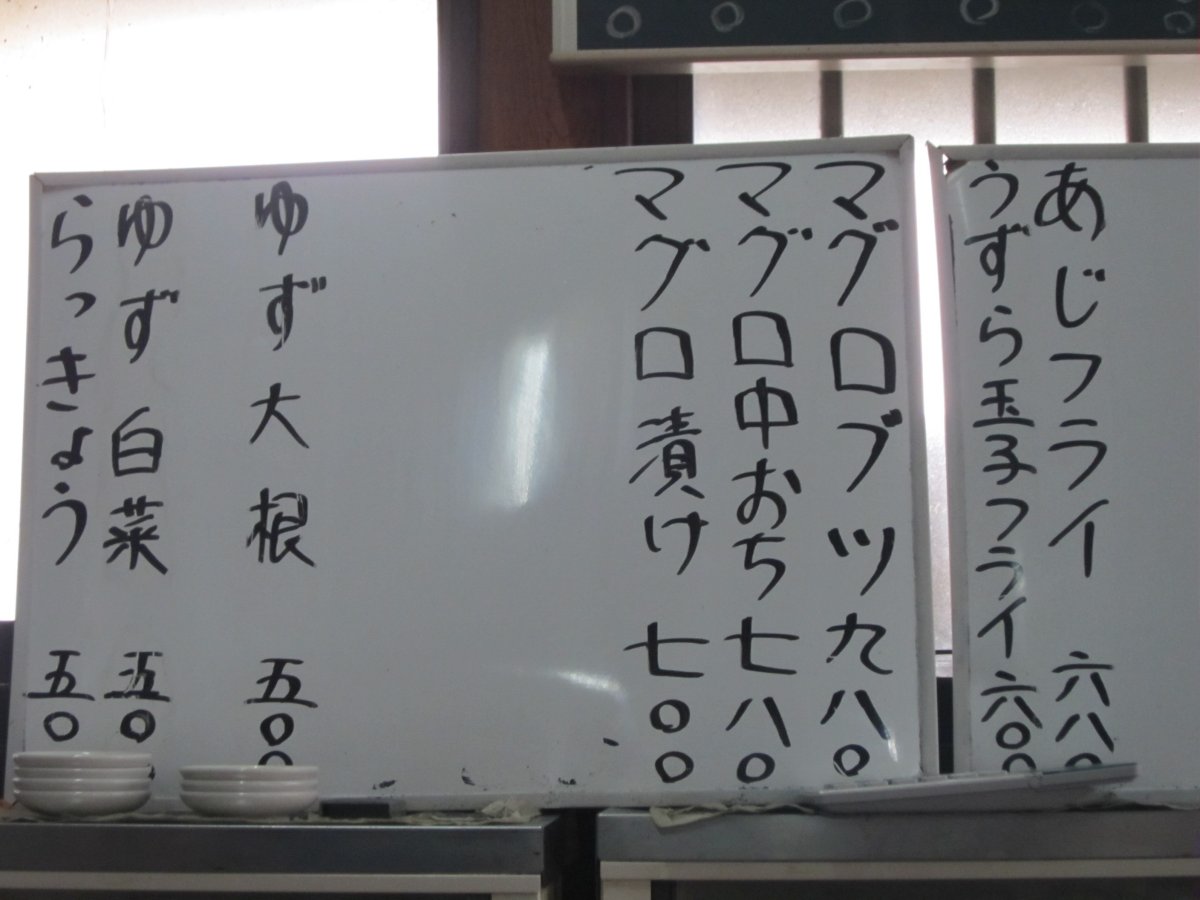 あじフライ 六八〇
うずら玉子フライ 六〇〇
マグロブツ 九八〇
マグロ中おち 七八〇
マグロ漬け 七〇〇
ゆず大根 五〇〇
ゆず白菜 五〇
らっきょう 五〇